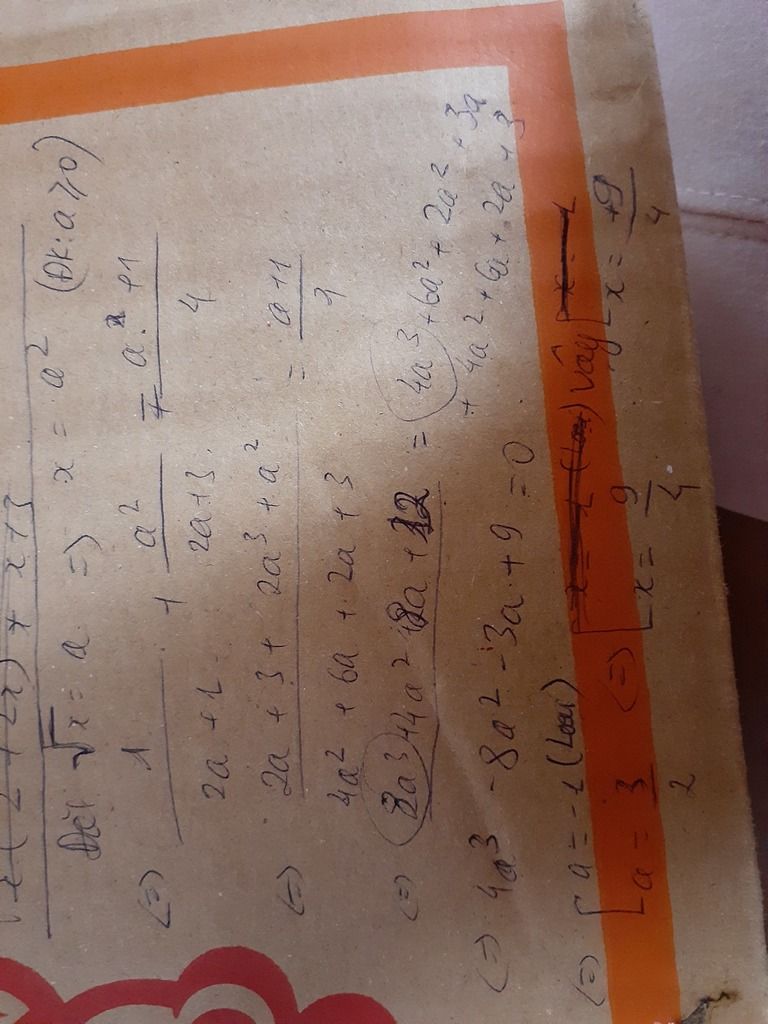 x(2+2x) + x+3
Đặt √x = a => x = a² (ĐK: a ≥ 0)
(=) 1/(2a+1) + a²/(2a+3) = (a²+1)/4
(=) (2a+3+2a³+a²)/(4a²+6a+2a+3) = (a+1)/4
(=) 8a³+4a²+8a+12 = 4a³+6a²+2a²+3a
+ 4a²+6a+2a+3
(=) 4a³ - 8a² - 3a + 9 = 0
(=) [ a = -1 (Loại)
[ a = 3/2 (=) [ x = 9/4 Vậy [ x = +9/4